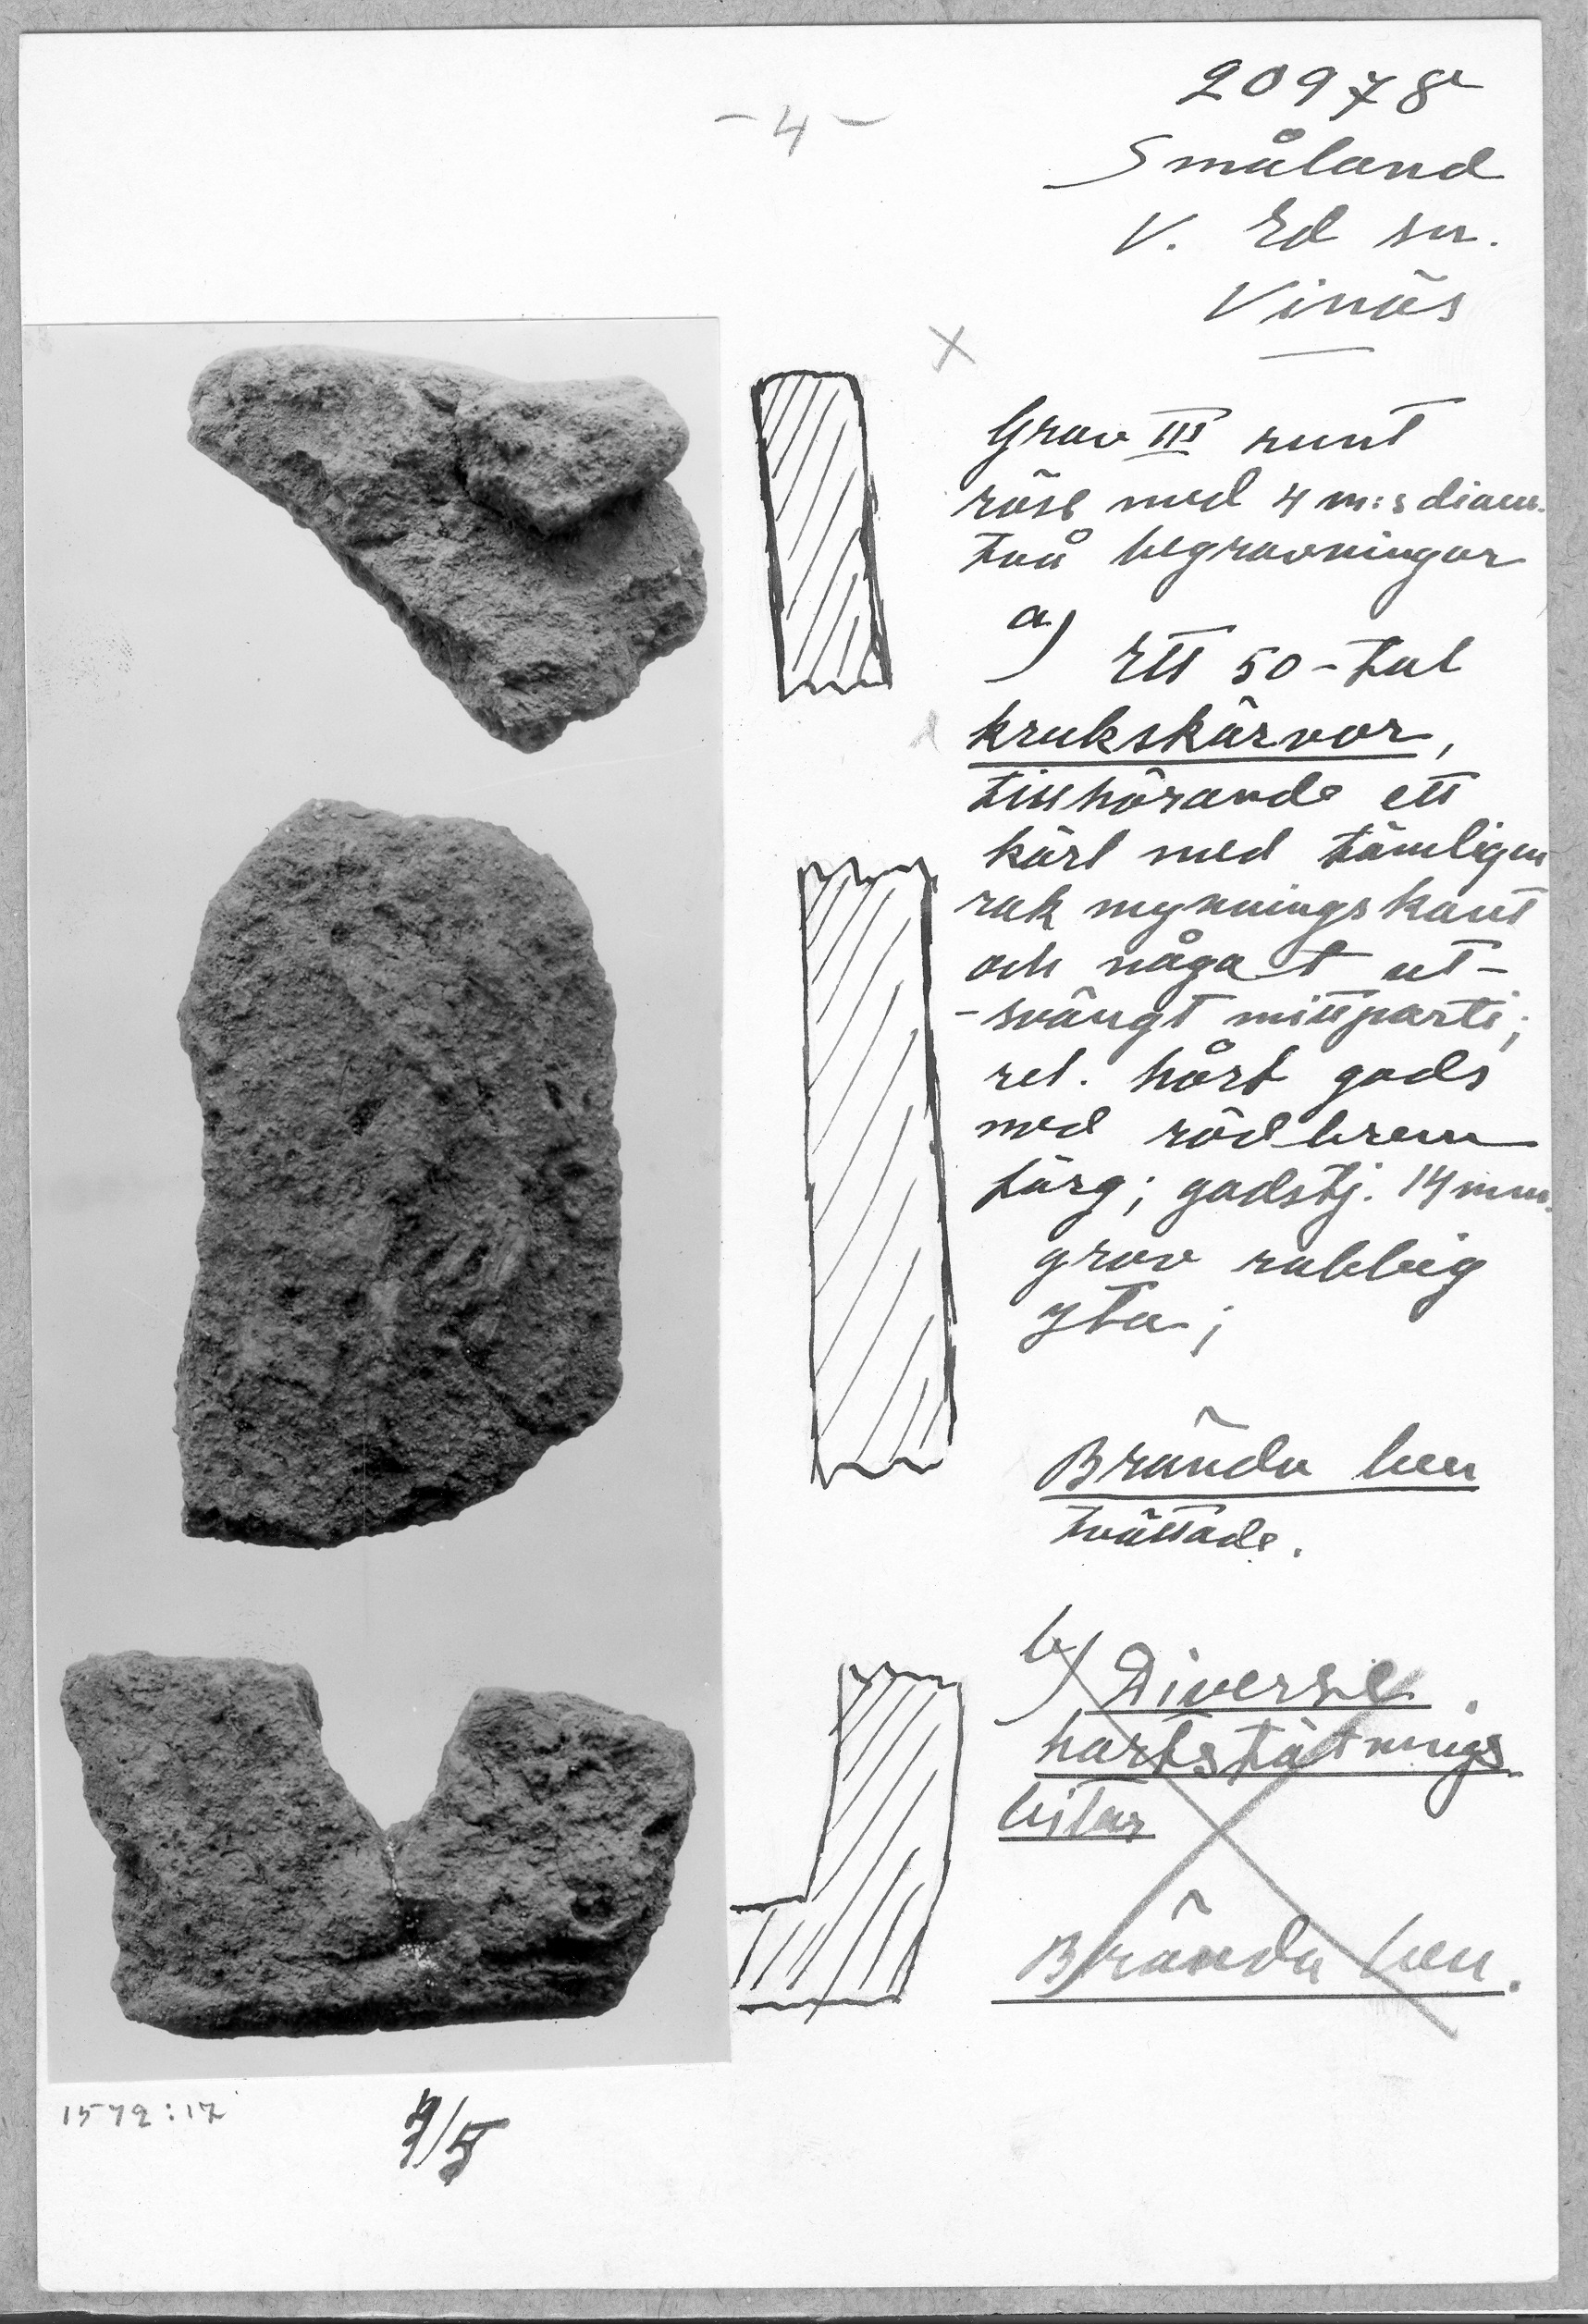 - 4 -
20978
Småland
V. Ed sn.
Vinäs
x
Grav III runt
röse med 4 m:s diam.
två begravningar
a)
Ett 50-tal
krukskärvor,
tillhörande ett
kärl med tämligen
rak mynningskant
och något ut-
-svängt mittparti;
rel. hårt gods
med rödbrun
färg; godstj. 14 mm.
grov rabbig
yta;
Brända ben
tvättade.
b) Diverse
hartstätnings
bitar
Brända ben.
1572:17